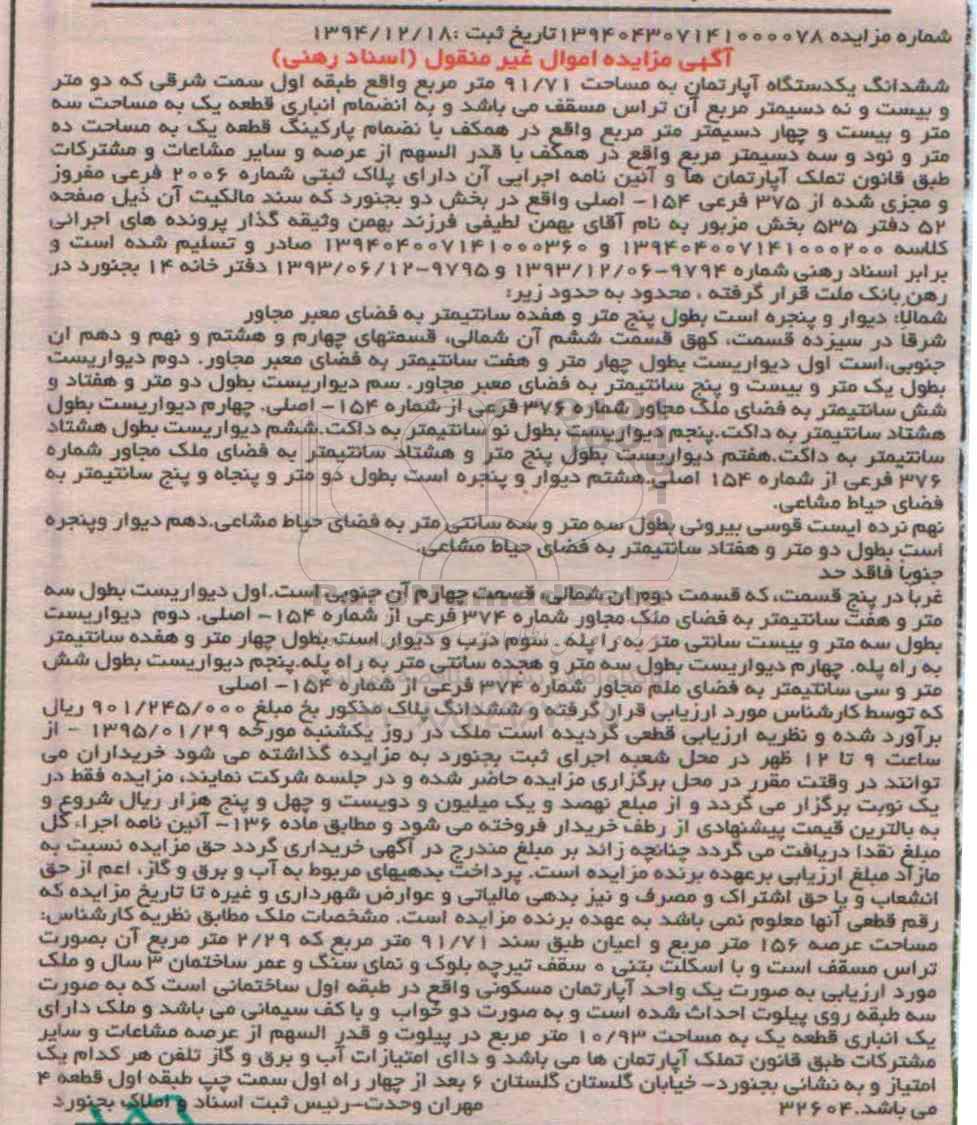 شماره مزایده ۱۳۹۴۰۴۳۰۷۱۴۱۰۰۰۰۷۸تاریخ ثبت :۱۳۹۴/۱۲/۱۸
آگهی مزایده اموال غیر منقول (اسناد رهنی)
ششدانگ یکدستگاه آپارتمان به مساحت ۹۱/۷۱ متر مربع واقع طبقه اول سمت شرقی که دو متر
و بیست و نه دسیمتر مربع آن تراس مسقف می باشد و به انضمام انباری قطعه یک به مساحت سه
متر و بیست و چهار دسیمتر متر مربع واقع در همکف با نضمام پارکینگ قطعه یک به مساحت ده
متر و نود و سه دسیمتر مربع واقع در همکف با قدر السهم از عرصه و سایر مشاعات و مشترکات
طبق قانون تملک آپارتمان ها و آئین نامه اجرایی آن دارای پلاک ثبتی شماره ۲۰۰۶ فرعی مفروز
و مجزی شده از ۳۷۵ فرعی ۱۵۴- اصلی واقع در بخش دو بجنورد که سند مالکیت آن ذیل صفحه
۵۲ دفتر ۵۳۵ بخش مزبور به نام آقای بهمن لطیفی فرزند بهمن وثیقه گذار پرونده های اجرائی
کلاسه ۱۳۹۴۰۴۰۰۷۱۴۱۰۰۰۲۰۰ و ۱۳۹۴۰۴۰۰۷۱۴۱۰۰۰۳۶۰ صادر و تسلیم شده است و
برابر اسناد رهنی شماره ۹۷۹۴-۱۳۹۳/۱۲/۰۶ و ۹۷۹۵-۱۳۹۳/۰۶/۱۲ دفتر خانه ۱۴ بجنورد در
رهن بانک ملت قرار گرفته ، محدود به حدود زیر:
شمالاً: دیوار و پنجره است بطول پنج متر و هفده سانتیمتر به فضای معبر مجاور
شرقاً در سیزده قسمت، کهق قسمت ششم آن شمالی، قسمتهای چهارم و هشتم و نهم و دهم ان
جنوبی،است اول دیواریست بطول چهار متر و هفت سانتیمتر به فضای معبر مجاور. دوم دیواریست
بطول یک متر و بیست و پنج سانتیمتر به فضای معبر مجاور. سم دیواریست بطول دو متر و هفتاد و
شش سانتیمتر به فضای ملک مجاور شماره ۳۷۶ فرعی از شماره ۱۵۴- اصلی. چهارم دیواریست بطول
هشتاد سانتیمتر به داکت.پنجم دیواریست بطول نو سانتیمتر به داکت.ششم دیواریست بطول هشتاد
سانتیمتر به داکت.هفتم دیواریست بطول پنج متر و هشتاد سانتیمتر به فضای ملک مجاور شماره
۳۷۶ فرعی از شماره ۱۵۴ اصلی.هشتم دیوار و پنجره است بطول دو متر و پنجاه و پنج سانتیمتر به
فضای حیاط مشاعی.
نهم نرده ایست قوسی بیرونی بطول سه متر و سه سانتی متر به فضای حیاط مشاعی.دهم دیوار وپنجره
است بطول دو متر و هفتاد سانتیمتر به فضای حیاط مشاعی.
جنوباً فاقد حد
غرباً در پنج قسمت، که قسمت دوم ان شمالی، قسمت چهارم آن جنوبی است.اول دیواریست بطول سه
متر و هفت سانتیمتر به فضای ملک مجاور شماره ۳۷۴ فرعی از شماره ۱۵۴- اصلی. دوم دیواریست
بطول سه متر و بیست سانتی متر به را پله . سوم درب و دیوار است بطول چهار متر و هفده سانتیمتر
به راه پله. چهارم دیواریست بطول سه متر و هجده سانتی متر به راه پله.پنجم دیواریست بطول شش
متر و سی سانتیمتر به فضای ملم مجاور شماره ۳۷۴ فرعی از شماره ۱۵۴- اصلی
که توسط کارشناس مورد ارزیابی قرار گرفته و ششدانگ پلاک مذکور بخ مبلغ ۹۰۱/۲۴۵/۰۰۰ ریال
برآورد شده و نظریه ارزیابی قطعی گردیده است ملک در روز یکشنبه مورخه ۱۳۹۵/۰۱/۲۹ - از
ساعت ۹ تا ۱۲ ظهر در محل شعبه اجرای ثبت بجنورد به مزایده گذاشته می شود خریداران می
توانند در وقتت مقرر در محل برگزاری مزایده حاضر شده و در جلسه شرکت نمایند، مزایده فقط در
یک نوبت برگزار می گردد و از مبلغ نهصد و یک میلیون و دویست و چهل و پنج هزار ریال شروع و
به بالترین قیمت پیشنهادی از رطف خریدار فروخته می شود و مطابق ماده ۱۳۶- آئین نامه اجراء کل
مبلغ نقدا دریافت می گردد چنانچه زائد بر مبلغ مندرج در آگهی خریداری گردد حق مزایده نسبت به
مازاد مبلغ ارزیابی برعهده برنده مزایده است. پرداخت بدهیهای مربوط به آب و برق و گاز، اعم از حق
انشعاب و یا حق اشتراک و مصرف و نیز بدهی مالیاتی و عوارض شهرداری و غیره تا تاریخ مزایده که
رقم قطعی آنها معلوم نمی باشد به عهده برنده مزایده است. مشخصات ملک مطابق نظریه کارشناس:
مساحت عرصه ۱۵۶ متر مربع و اعیان طبق سند ۹۱/۷۱ متر مربع که ۲/۲۹ متر مربع آن بصورت
تراس مسقف است و با اسکلت بتنی ه سقف تیرچه بلوک و نمای سنگ و عمر ساختمان ۳ سال و ملک
مورد ارزیابی به صورت یک واحد آپارتمان مسکونی واقع در طبقه اول ساختمانی است که به صورت
سه طبقه روی پیلوت احداث شده است و به صورت دو خواب و با کف سیمانی می باشد و ملک دارای
یک انباری قطعه یک به مساحت ۱۰/۹۳ متر مربع در پیلوت و قدر السهم از عرصه مشاعات و سایر
مشترکات طبق قانون تملک آپارتمان ها می باشد و داای امتیازات آب و برق و گاز تلفن هر کدام یک
امتیاز و به نشانی بجنورد- خیابان گلستان گلستان ۶ بعد از چهار راه اول سمت چپ طبقه اول قطعه ۴
می باشد.۳۲۶۰۴ مهران وحدت-رئیس ثبت اسناد و املاک بجنورد